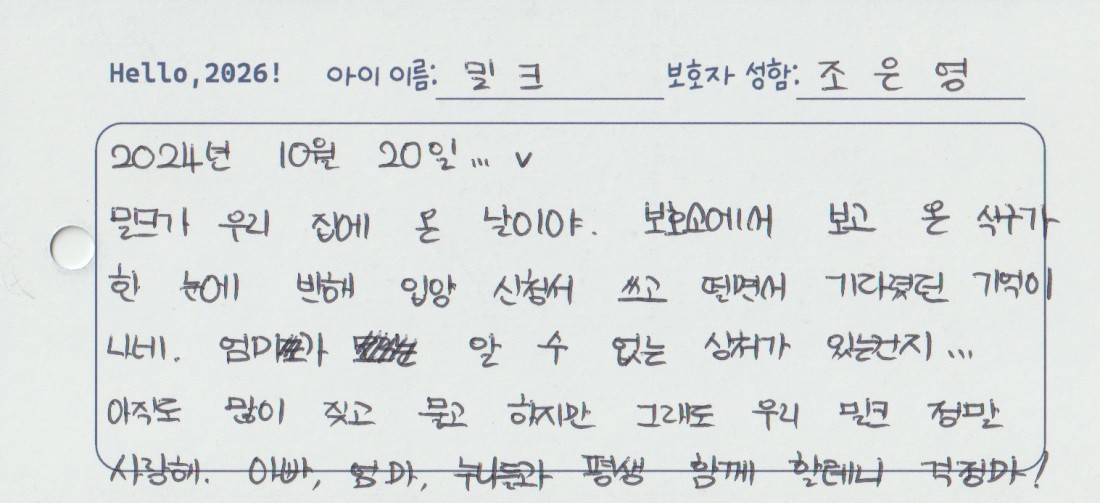 Hello,2026! 아이 이름: 밀크 보호자 성함: 조은영
2024년 10월 20일... v
밀크가 우리 집에 온 날이야. 보호소에서 보고 온 식구가
한 눈에 반해 입양 신청서 쓰고 떨면서 기다렸던 기억이
나네. 엄마가 알 수 없는 상처가 있는건지...
아직도 많이 짖고 물고 하지만 그래도 우리 밀크 정말
사랑해. 아빠, 엄마, 누나들과 평생 함께 할테니 걱정마!